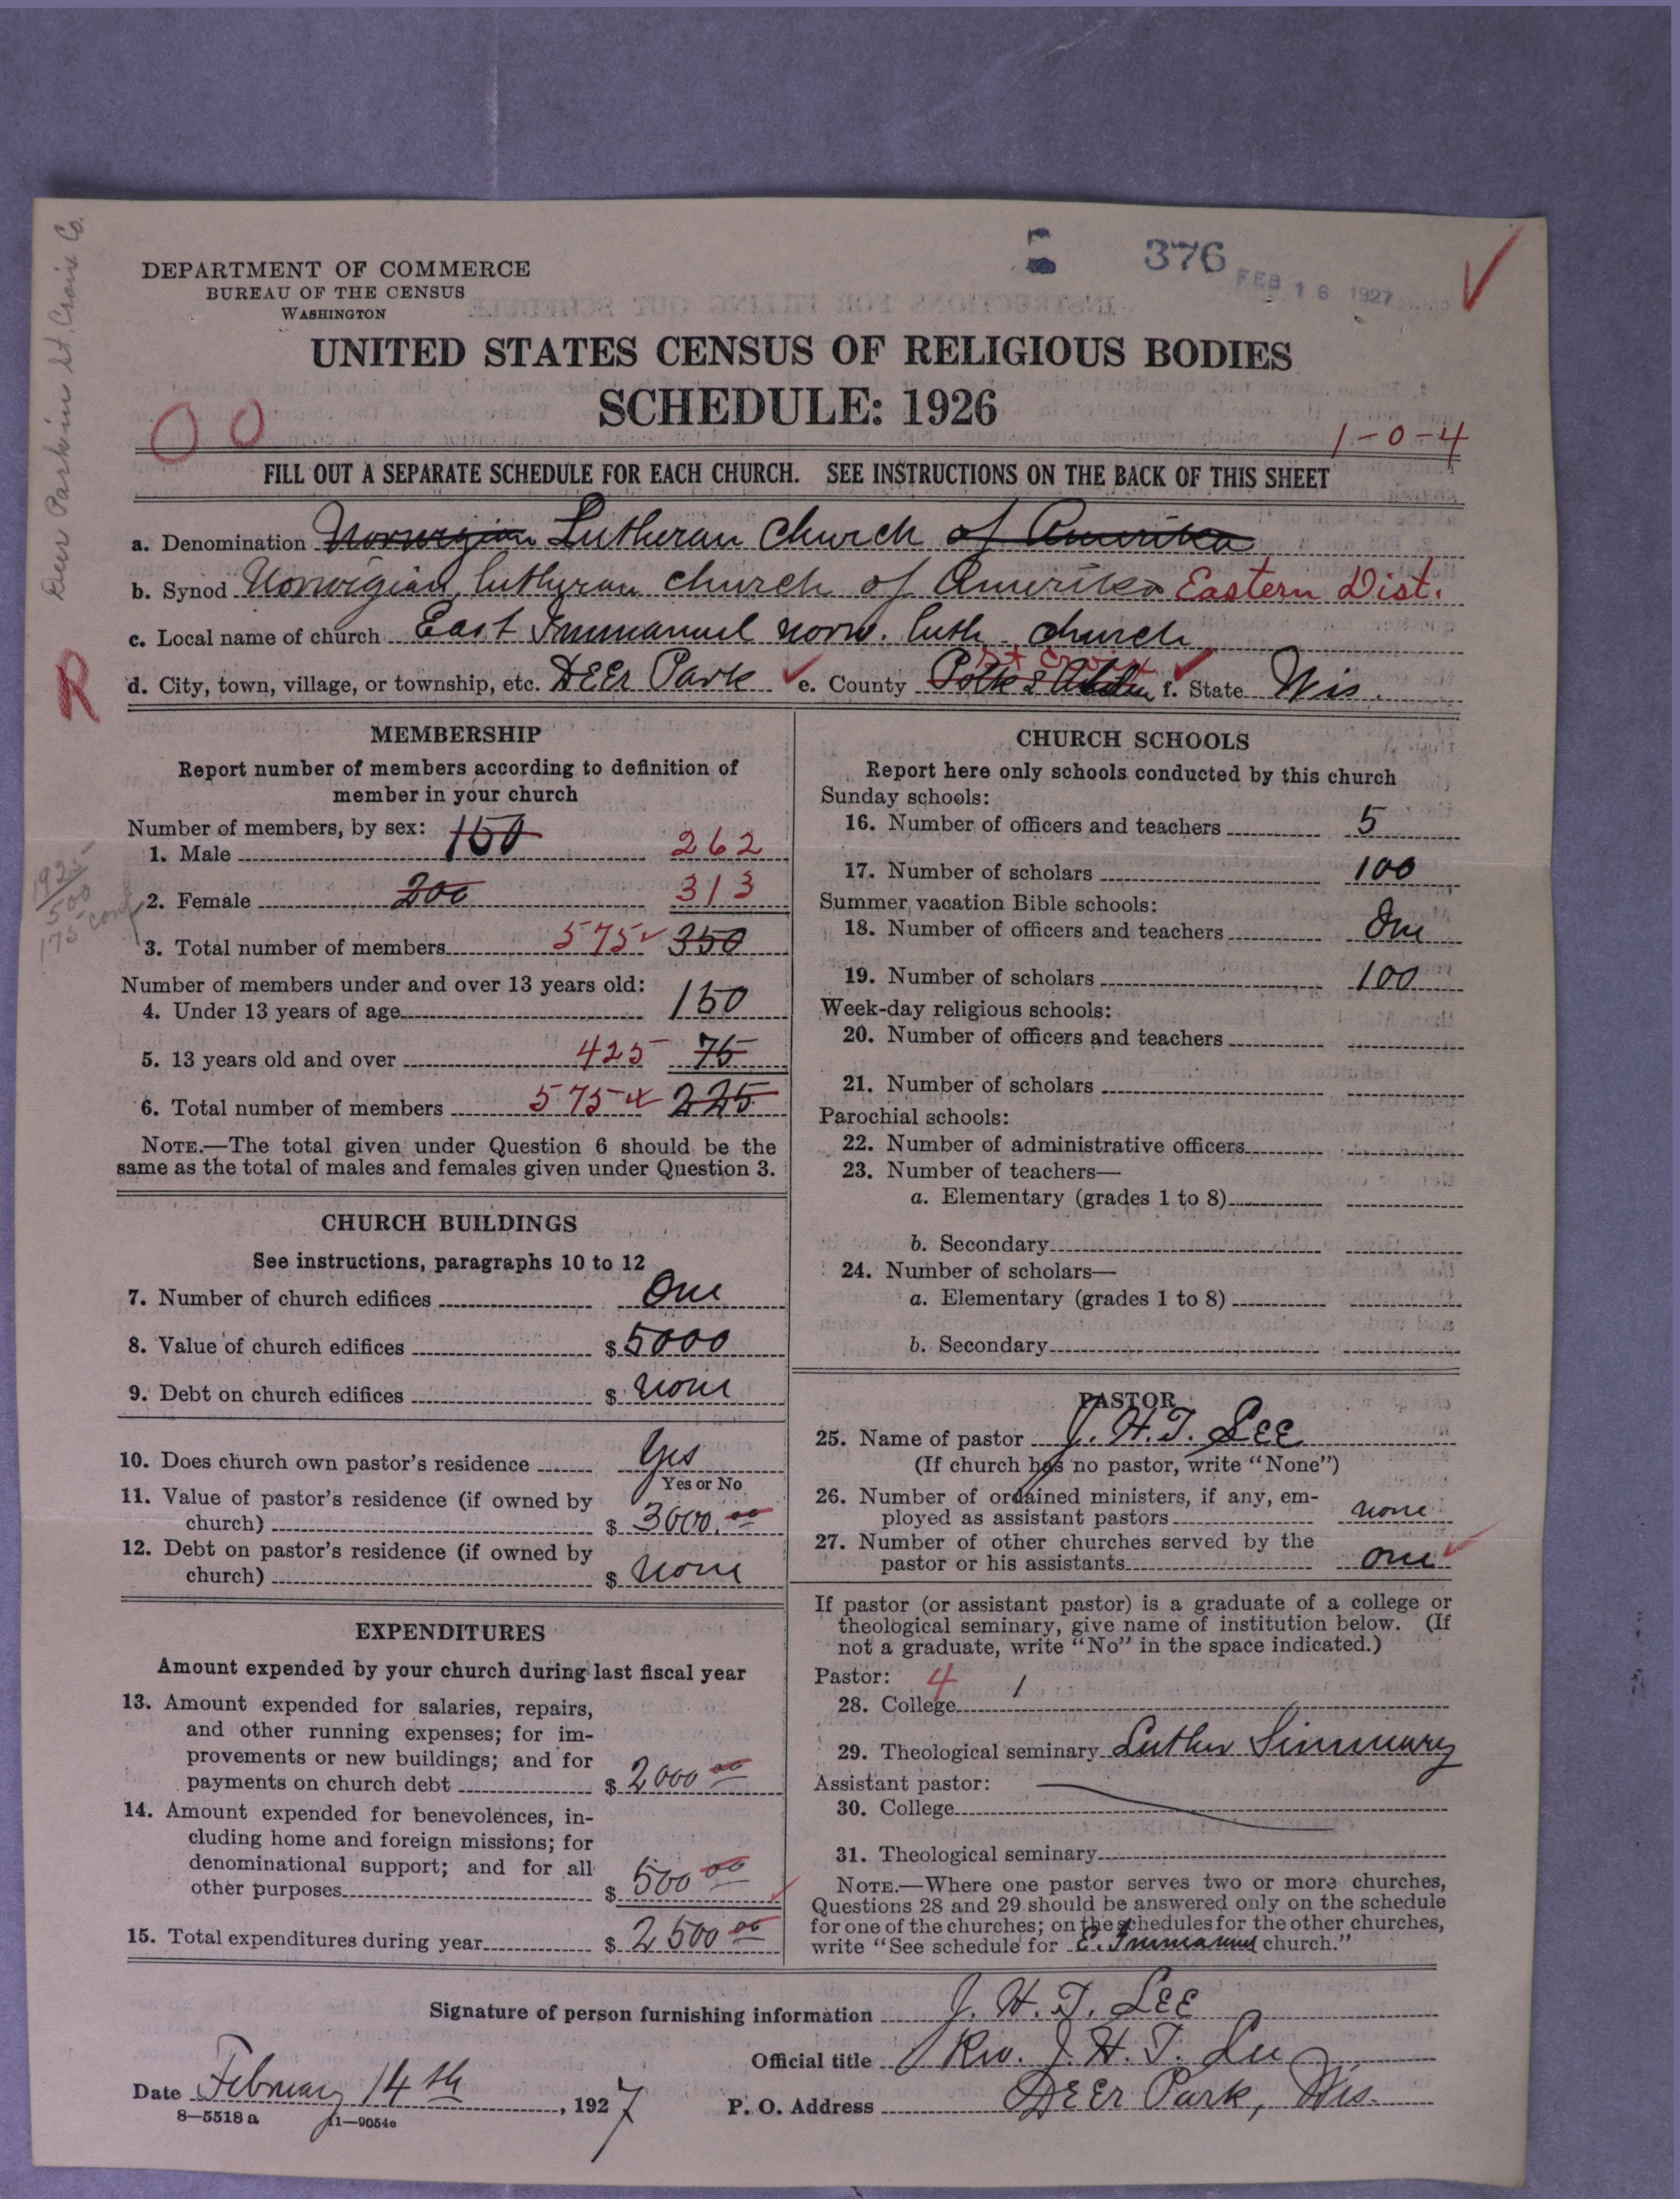 Deer Park in St. Croix Co.
DEPARTMENT OF COMMERCE
BUREAU OF THE CENSUS
WASHINGTON
376
FEB 16 1927
UNITED STATES CENSUS OF RELIGIOUS BODIES
SCHEDULE: 1926
0 0
1-0-4
FILL OUT A SEPARATE SCHEDULE FOR EACH CHURCH. SEE INSTRUCTIONS ON THE BACK OF THIS SHEET
a. Denomination Norwegian Lutheran Church of Amerika
b. Synod Norwigian Lutheran church of Amerika Eastern Dist.
c. Local name of church East Immanuel norw. luth. church
R
d. City, town, village, or township, etc. DEEr Park e. County Polk & Alden St Croix f. State Wis.
MEMBERSHIP
Report number of members according to definition of
member in your church
Number of members, by sex:
1. Male 150 262
2. Female 200 313
1925
500
175 conf
3. Total number of members 575 350
Number of members under and over 13 years old:
4. Under 13 years of age 150
5. 13 years old and over 425 75
6. Total number of members 575 225
NOTE.—The total given under Question 6 should be the
same as the total of males and females given under Question 3.
CHURCH BUILDINGS
See instructions, paragraphs 10 to 12
7. Number of church edifices One
8. Value of church edifices $ 5000
9. Debt on church edifices $ none
10. Does church own pastor's residence Yes
Yes or No
11. Value of pastor's residence (if owned by
church) $ 3000.00
12. Debt on pastor's residence (if owned by
church) $ none
EXPENDITURES
Amount expended by your church during last fiscal year
13. Amount expended for salaries, repairs,
and other running expenses; for im-
provements or new buildings; and for
payments on church debt $ 2000 00
14. Amount expended for benevolences, in-
cluding home and foreign missions; for
denominational support; and for all
other purposes $ 500 00
15. Total expenditures during year $ 2500 00
CHURCH SCHOOLS
Report here only schools conducted by this church
Sunday schools:
16. Number of officers and teachers 5
17. Number of scholars 100
Summer vacation Bible schools:
18. Number of officers and teachers One
19. Number of scholars 100
Week-day religious schools:
20. Number of officers and teachers
21. Number of scholars
Parochial schools:
22. Number of administrative officers
23. Number of teachers—
a. Elementary (grades 1 to 8)
b. Secondary
24. Number of scholars—
a. Elementary (grades 1 to 8)
b. Secondary
PASTOR
25. Name of pastor J. H. T. LEE
(If church has no pastor, write "None")
26. Number of ordained ministers, if any, em-
ployed as assistant pastors none
27. Number of other churches served by the
pastor or his assistants one
If pastor (or assistant pastor) is a graduate of a college or
theological seminary, give name of institution below. (If
not a graduate, write "No" in the space indicated.)
Pastor: 4 1
28. College
29. Theological seminary Luther Simmnary
Assistant pastor:
30. College
31. Theological seminary
NOTE.—Where one pastor serves two or more churches,
Questions 28 and 29 should be answered only on the schedule
for one of the churches; on the schedules for the other churches,
write "See schedule for E. Immanuel church."
Signature of person furnishing information J. H. T. LEE
Official title Rev. J. H. T. Lee
Date February 14th, 1927
P. O. Address DEEr Park, Wis.
8—5518 a 11—9054e